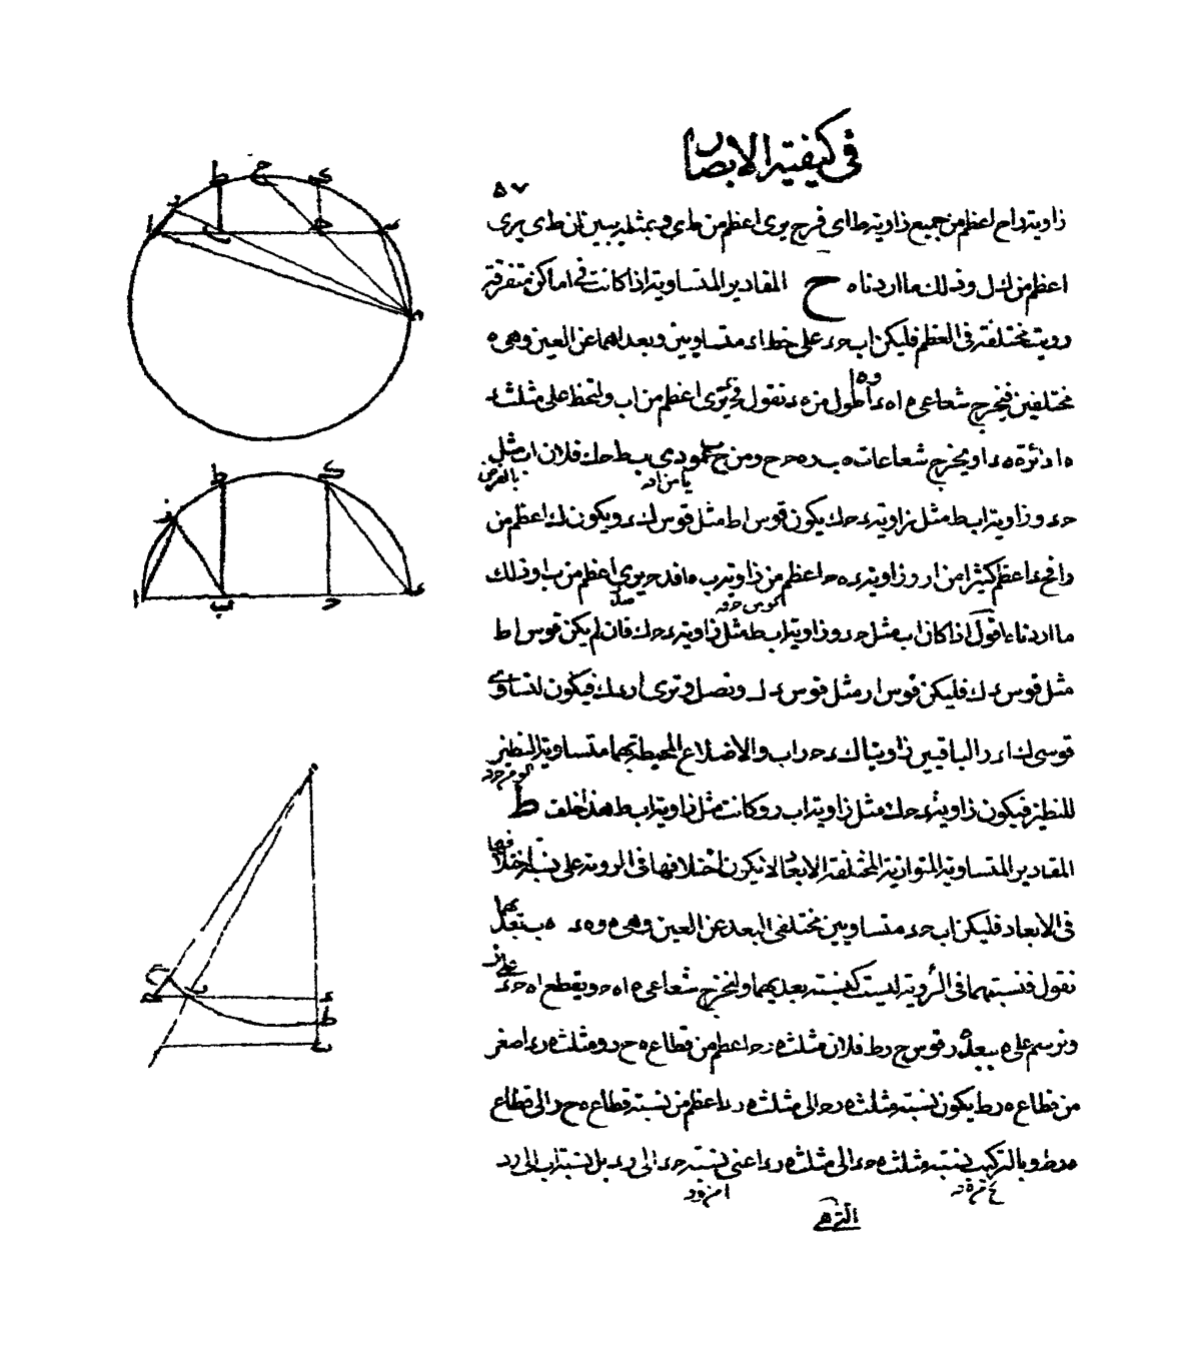 في كيفية الابصار
٥٧
زاوية داح اعظم من جميع زاوية طاى فرح يرى اعظم من طى وبمثله يبين ان طى يرى
اعظم من كل وذلك ما اردناه ح المقادير المتساوية اذا كانت في اماكن متفرقة
رويت مختلفة في العظم فليكن اب حء على خط اء متساويين وبعداهما عن العين وهى ه
مختلفين فيخرج شعاعى ه ا هء و ه ا اطول من هء نقول فحء يرى اعظم من اب ولتخط على مثلث
ه ا ء دائرة ه ء ا ويخرج شعاعات ه ب ر ه ح ح ومن ب ح عمودى ب ط ح ك فلان اب مثل
بالفرض يا من ا ر
حء وزاوية ا ب ط مثل زاوية ء ح ك يكون قوس ا ط مثل قوس ك ء ويكون ك ء اعظم من
وا ح ء اعظم كثيرا من ا ر وزاوية ء ه ح اعظم من زاوية ب ه ا ف ء ح يرى اعظم من ب ا وذلك
ما اردناه اقول اذا كان اب مثل ح ء وزاوية ا ب ط مثل زاوية ء ح ك فان لم يكن قوس ا ط
مثل قوس ء ك فليكن قوس ا ر مثل قوس ء ك ونصل وترى ا ر ء ك فيكون لتساوى
قوسى ك ا ء ر الباقيين زاويتا ك ء ح ر ا ب والاضلاع المحيطة بهما متساوية النظير
للنظير فيكون زاوية ء ح ك مثل زاوية ا ب ر وكانت مثل زاوية ا ب ط هذا خلف ط
المقادير المتساوية المتوازية المختلفة الابعاد لا يكون اختلافها في الروية على نسبة اختلافها
في الابعاد فليكن اب حء متساويين مختلفى البعد عن العين وهى ه وه ء ه ب بعداهما
نقول فنسبتهما في الرؤية ليست كنسبة بعديهما ولنخرج شعاعى ه ا ه ح ويقطع ا ه ح ء على ر
ونرسم على ه ببعد ه ر قوس ح ر ط فلان مثلث ه ر ح اعظم من قطاع ه ح ر ومثلث ه ر ء اصغر
من قطاع ه ر ط يكون نسبة مثلث ه ر ح الى مثلث ه ر ء اعظم من نسبة قطاع ه ح ر الى قطاع
ه ر ط وبالتركيب نسبة مثلث ه ح ء الى مثلث ه ر ء اعنى نسبة ح ء الى ر ء بل نسبة اب الى ر ء